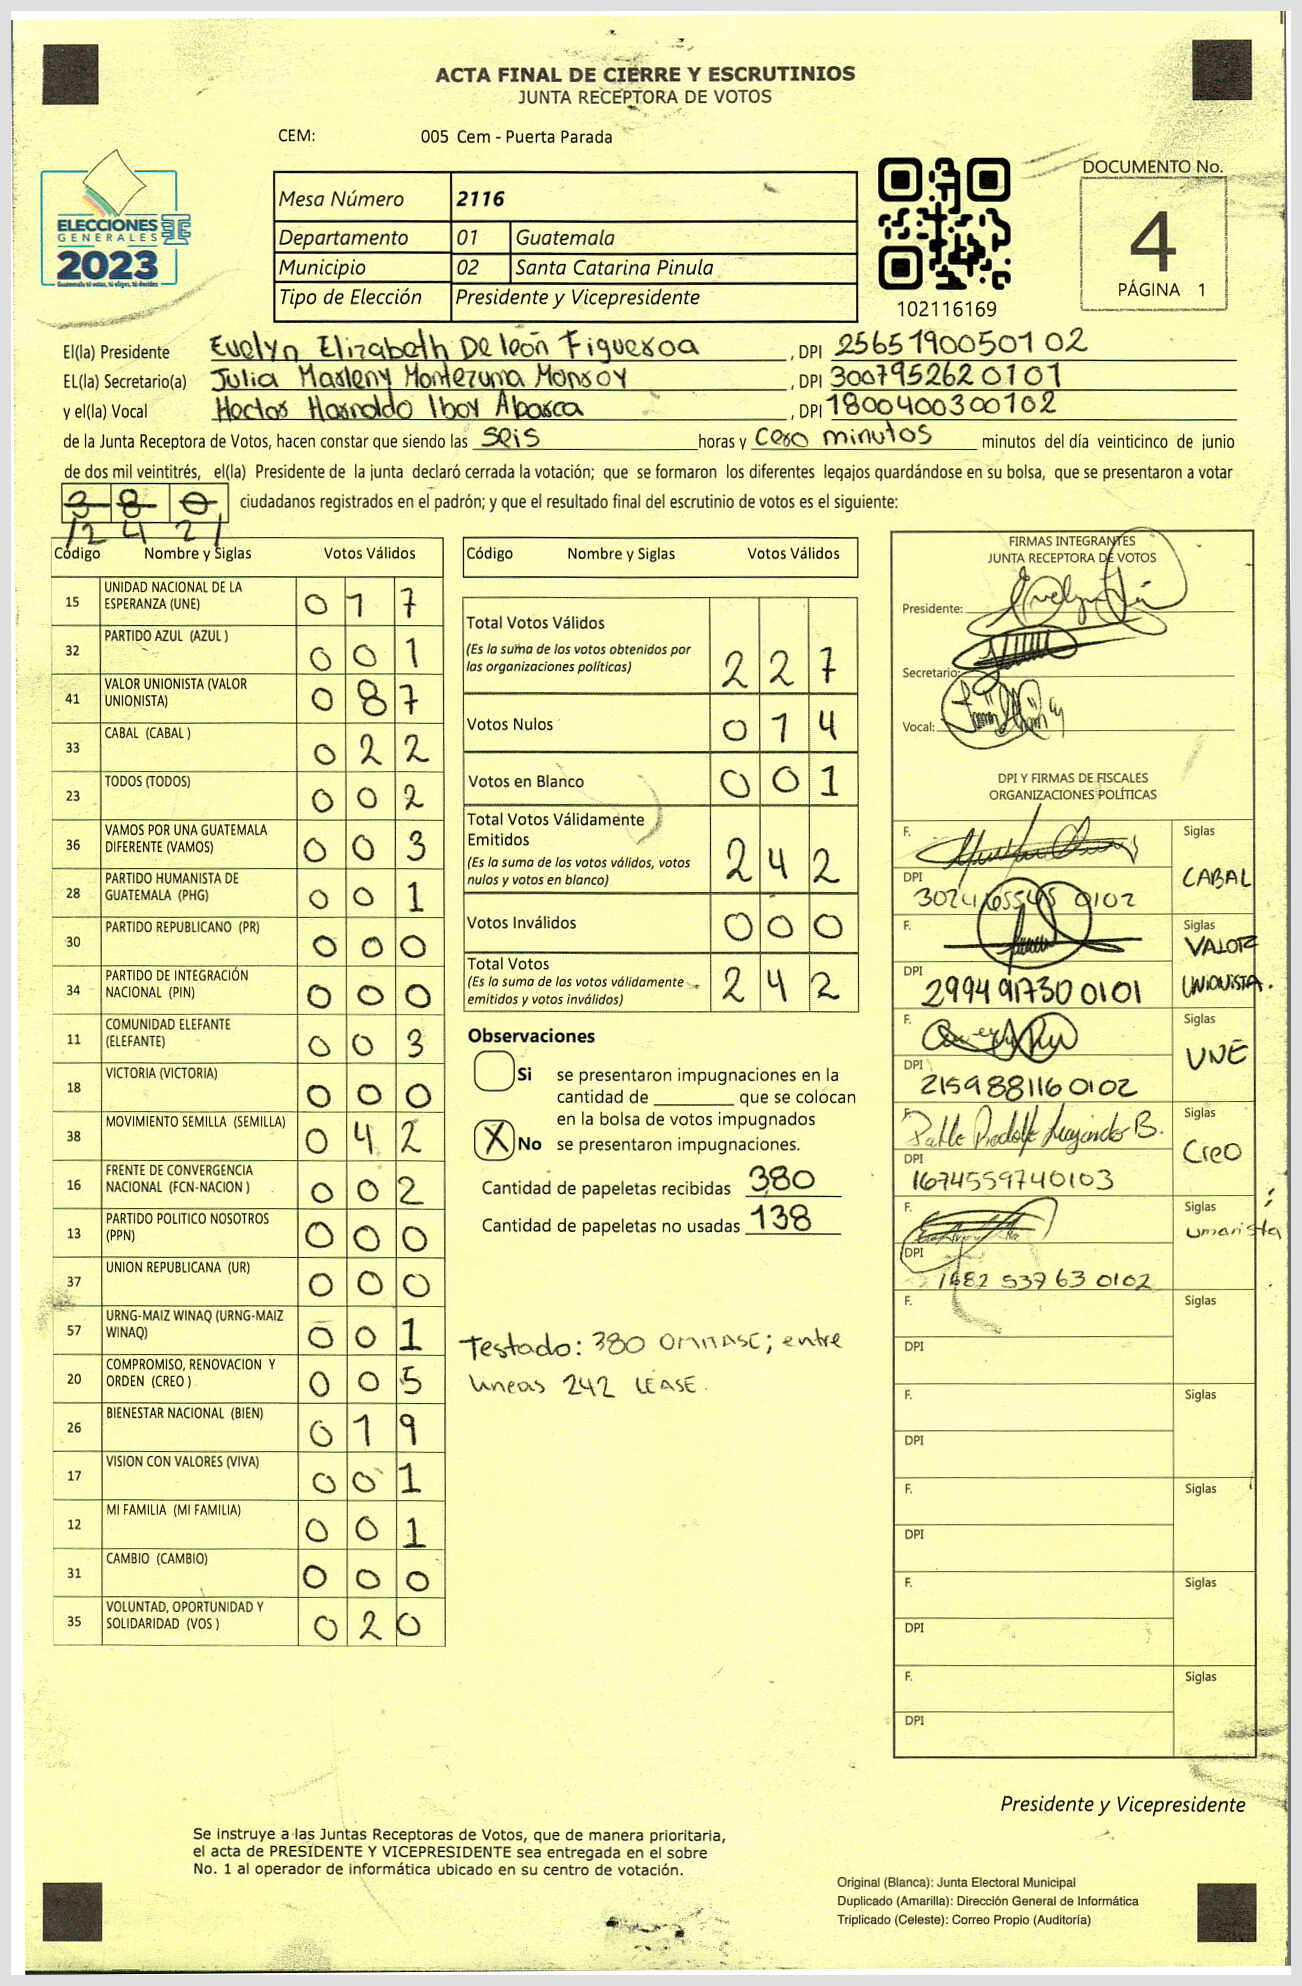 ACTA FINAL DE CIERRE Y ESCRUTINIOS
JUNTA RECEPTORA DE VOTOS
CEM: 005 Cem - Puerta Parada
ELECCIONES
GENERALES
2023
Guatemala tú votas, tú eliges, tú decides
Mesa Número 2116
Departamento 01 Guatemala
Municipio 02 Santa Catarina Pinula
Tipo de Elección Presidente y Vicepresidente
102116169
DOCUMENTO No.
4
PÁGINA 1
El(la) Presidente Evelyn Elizabeth De león Figueroa, DPI 2565190050102
EL(la) Secretario(a) Julia Marleny Montezuma Monroy, DPI 3007952620101
y el(la) Vocal Hector Harnoldo Iboy Abarca, DPI 1800400300102
de la Junta Receptora de Votos, hacen constar que siendo las seis horas y cero minutos minutos del día veinticinco de junio
de dos mil veintitrés, el(la) Presidente de la junta declaró cerrada la votación; que se formaron los diferentes legajos quardándose en su bolsa, que se presentaron a votar
3 8 0 ciudadanos registrados en el padrón; y que el resultado final del escrutinio de votos es el siguiente:
/2 4 2/
Código Nombre y Siglas Votos Válidos
15 UNIDAD NACIONAL DE LA ESPERANZA (UNE) 0 1 7
32 PARTIDO AZUL (AZUL ) 0 0 1
41 VALOR UNIONISTA (VALOR UNIONISTA) 0 8 7
33 CABAL (CABAL ) 0 2 2
23 TODOS (TODOS) 0 0 2
36 VAMOS POR UNA GUATEMALA DIFERENTE (VAMOS) 0 0 3
28 PARTIDO HUMANISTA DE GUATEMALA (PHG) 0 0 1
30 PARTIDO REPUBLICANO (PR) 0 0 0
34 PARTIDO DE INTEGRACIÓN NACIONAL (PIN) 0 0 0
11 COMUNIDAD ELEFANTE (ELEFANTE) 0 0 3
18 VICTORIA (VICTORIA) 0 0 0
38 MOVIMIENTO SEMILLA (SEMILLA) 0 4 2
16 FRENTE DE CONVERGENCIA NACIONAL (FCN-NACION ) 0 0 2
13 PARTIDO POLITICO NOSOTROS (PPN) 0 0 0
37 UNION REPUBLICANA (UR) 0 0 0
57 URNG-MAIZ WINAQ (URNG-MAIZ WINAQ) 0 0 1
20 COMPROMISO, RENOVACION Y ORDEN (CREO ) 0 0 5
26 BIENESTAR NACIONAL (BIEN) 0 1 9
17 VISION CON VALORES (VIVA) 0 0 1
12 MI FAMILIA (MI FAMILIA) 0 0 1
31 CAMBIO (CAMBIO) 0 0 0
35 VOLUNTAD, OPORTUNIDAD Y SOLIDARIDAD (VOS ) 0 2 0
Código Nombre y Siglas Votos Válidos
Total Votos Válidos 2 2 7
(Es la suma de los votos obtenidos por
las organizaciones políticas)
Votos Nulos 0 1 4
Votos en Blanco 0 0 1
Total Votos Válidamente
Emitidos 2 4 2
(Es la suma de los votos válidos, votos
nulos y votos en blanco)
Votos Inválidos 0 0 0
Total Votos 2 4 2
(Es la suma de los votos válidamente
emitidos y votos inválidos)
Observaciones
Si se presentaron impugnaciones en la
cantidad de ________ que se colocan
en la bolsa de votos impugnados
X No se presentaron impugnaciones.
Cantidad de papeletas recibidas 380
Cantidad de papeletas no usadas 138
Testado: 380 OMITASE; entre
lineas 242 LEASE.
FIRMAS INTEGRANTES
JUNTA RECEPTORA DE VOTOS
Presidente:
Secretario:
Vocal:
DPI Y FIRMAS DE FISCALES
ORGANIZACIONES POLÍTICAS
F. Siglas
DPI CABAL
0102
F. Siglas
VALOR
DPI UNIONISTA.
2994917300101
F. Siglas
DPI UNE
2159881160102
F. Siglas
DPI Creo
1674559740103
F. Siglas
DPI
1682 537 63 0102
F. Siglas
DPI
F. Siglas
DPI
F. Siglas
DPI
F. Siglas
DPI
F. Siglas
DPI
Presidente y Vicepresidente
Se instruye a las Juntas Receptoras de Votos, que de manera prioritaria,
el acta de PRESIDENTE Y VICEPRESIDENTE sea entregada en el sobre
No. 1 al operador de informática ubicado en su centro de votación.
Original (Blanca): Junta Electoral Municipal
Duplicado (Amarilla): Dirección General de Informática
Triplicado (Celeste): Correo Propio (Auditoría)